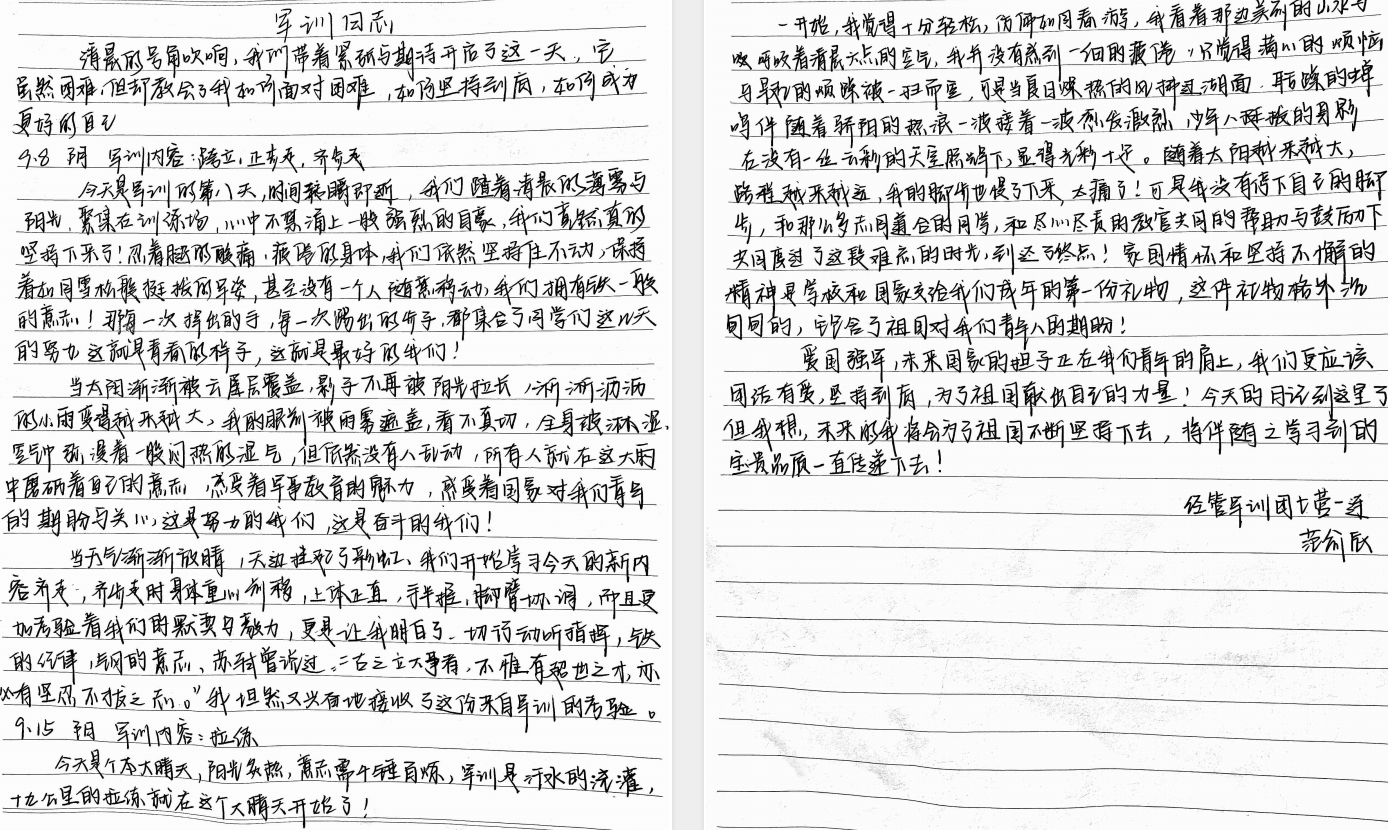 军训日志
清晨的号角吹响，我们带着紧张与期待开启了这一天，它
虽然困难，但却教会了我如何面对困难，如何坚持到底，如何成为
更好的自己
9.8 阴 军训内容：跨立，正步走，齐步走
今天是军训的第八天，时间转瞬即逝，我们随着清晨的薄雾与
阳光，聚集在训练场，心中不禁涌上一股强烈的自豪，我们竟然真的
坚持下来了！忍着腿的酸痛，疲惫的身体，我们依然坚持住不动，保持
着如同雪松般挺拔的军姿，甚至没有一个人随意移动，我们拥有铁一般
的意志！每一次摆出的手，每一次踢出的步子，都集合了同学们这几天
的努力 这就是青春的样子，这就是最好的我们！
当太阳渐渐被云层层覆盖，影子不再被阳光拉长，淅淅沥沥
的小雨变得越来越大，我的眼前被雨雾遮盖，看不真切，全身被淋湿，
空气中弥漫着一股闷热的湿气，但依然没有人乱动，所有人就在这大雨
中磨砺着自己的意志，感受着军事教育的魅力，感受着国家对我们青年
的期盼与关心，这是努力的我们，这是奋斗的我们！
当天气渐渐放晴，天边挂起了彩虹、我们开始学习今天的新内
容齐步走，齐步走时身体重心前移，上体正直，手半握，脚臂协调，而且更
加考验着我们的默契与毅力，更是让我明白了一切行动听指挥，铁
的纪律，钢的意志、苏轼曾说过："古之立大事者，不惟有超世之才，亦
必有坚忍不拔之志。"我坦然又兴奋地接收了这份来自军训的考验。
9.15 阴 军训内容：拉练
今天是个本大晴天，阳光炙热，意志需千锤百炼，军训是汗水的浇灌，
十九公里的拉练就在这个大晴天开始了！
一开始，我觉得十分轻松，仿佛如同春游，我看着那边美丽的山水与
呼吸着清晨六点的空气，我并没有感到一细的疲倦，只觉得满心的烦恼
与早起的烦躁被一扫而空，可是当夏日燥热的风拂过湖面，聒噪的蝉
鸣伴随着骄阳的热浪一波接着一波愈发激烈，少年人挺拔的身影
在没有一丝云彩的天空照耀下，显得光彩十足。随着太阳越来越大，
路程越来越远，我的脚步也慢了下来，太痛了！可是我没有停下自己的脚
步，和那么多志同道合的同学，和尽心尽责的教官共同的帮助与鼓励下
共同度过了这段难忘的时光，到达了终点！家国情怀和坚持不懈的
精神是学校和国家交给我们成年的第一份礼物，这件礼物格外沉
甸甸的，它包含了祖国对我们青年人的期盼！
爱国强军，未来国家的担子正在我们青年的肩上，我们更应该
团结有爱，坚持到底，为了祖国献出自己的力量！今天的日记到这里了
但我想，未来的我将会为了祖国不断坚持下去，将伴随之学习到的
宝贵品质一直传递下去！
经管军训团七营一连
范俞辰